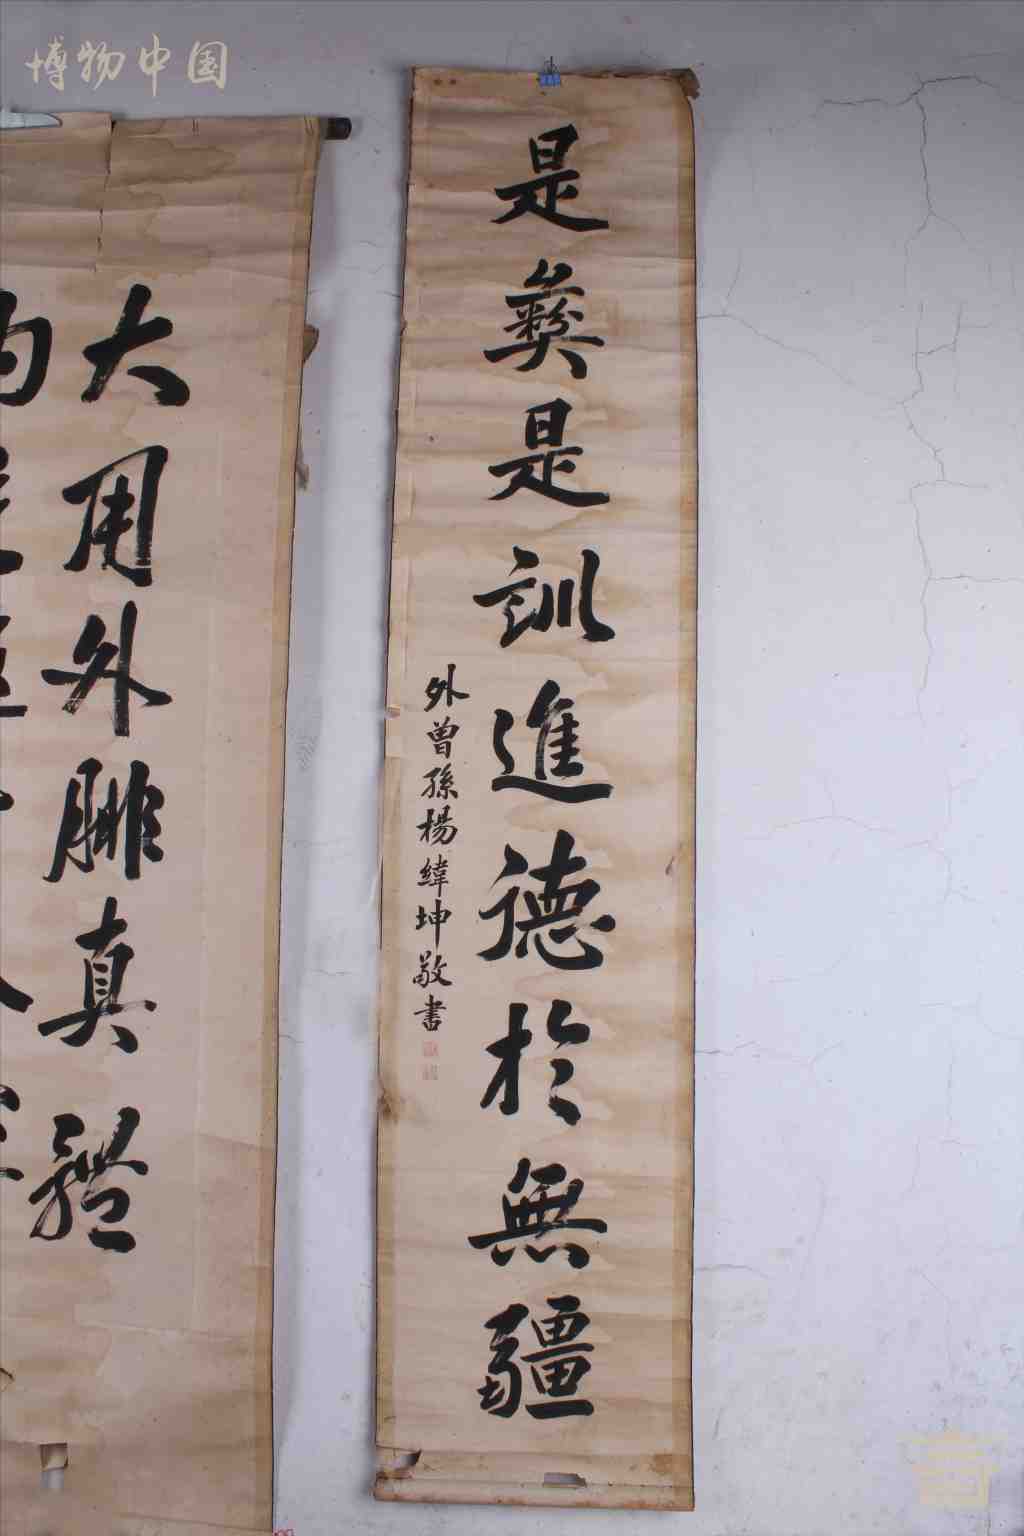 博物中国
是彝是訓進德於無疆
外曾孫楊緯坤敬書
大用外腓真體